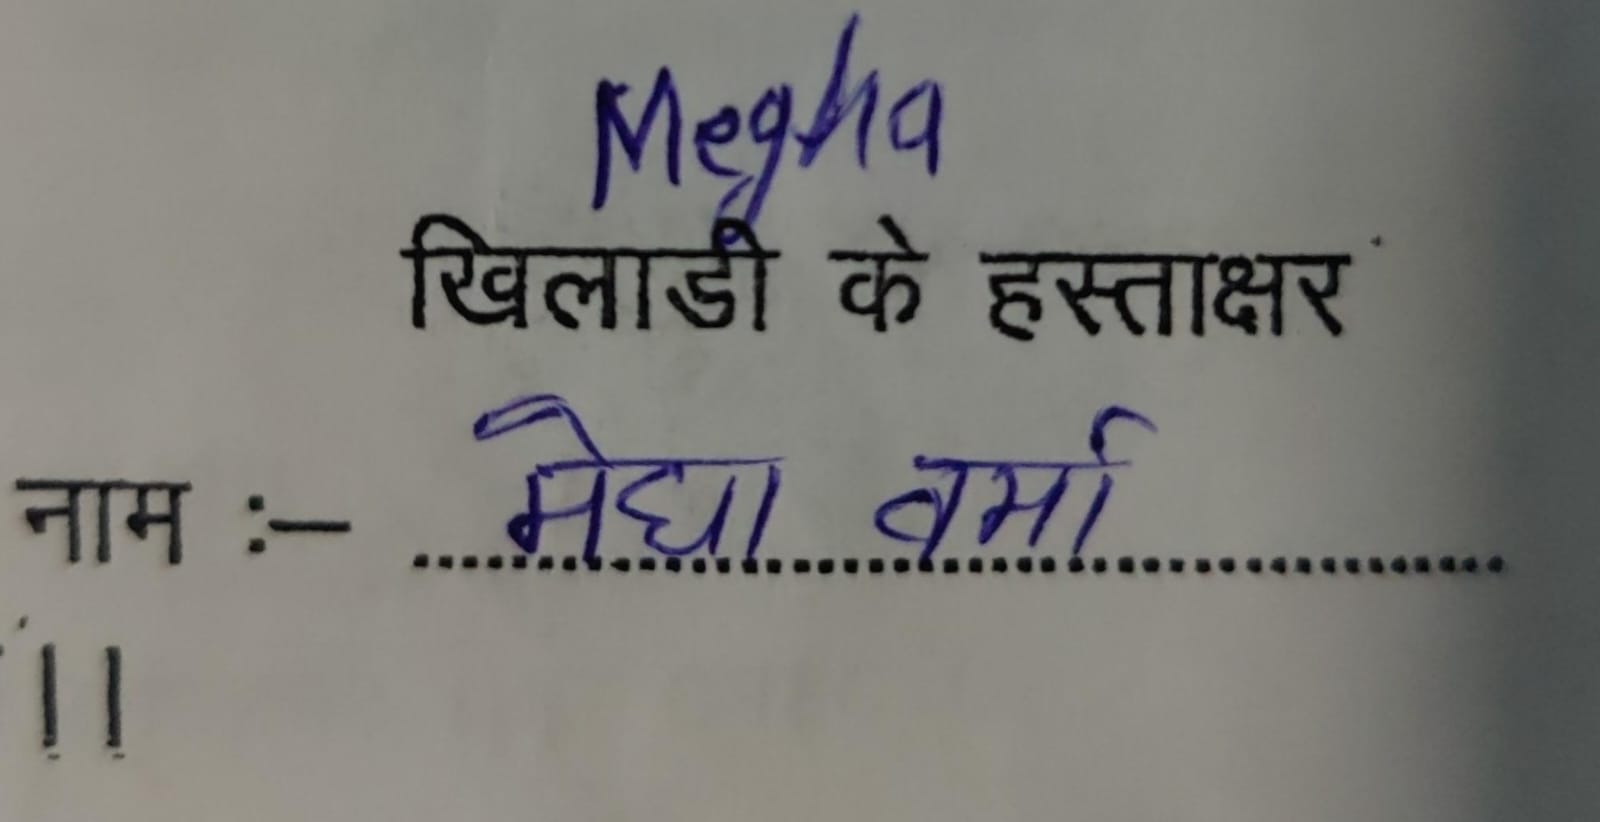 Megha
खिलाडी के हस्ताक्षर
नाम :– मेघा वर्मा
।।